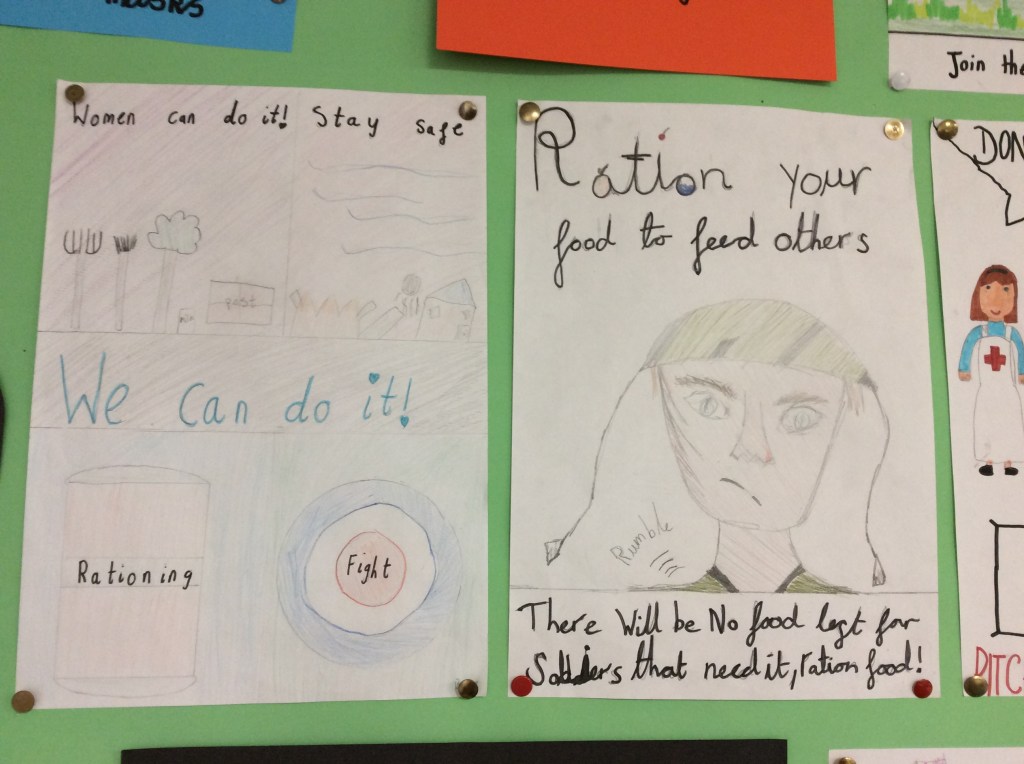 Join the
Women can do it! Stay safe
post
We Can do it!
Rationing
Fight
Ration your
food to feed others
Rumble
There Will be No food left for
Soldiers that need it, ration food!
DON
DITC